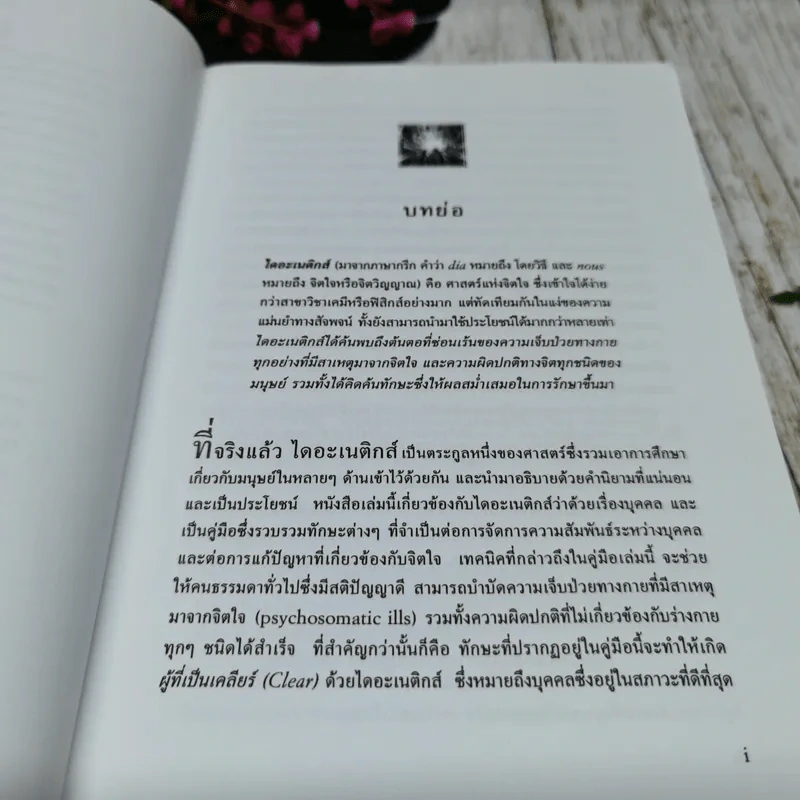 บทย่อ
ไดอะเนติกส์ (มาจากภาษากรีก คำว่า dia หมายถึง โดยวิธี และ nous
หมายถึง จิตใจหรือจิตวิญญาณ) คือ ศาสตร์แห่งจิตใจ ซึ่งเข้าใจได้ง่าย
กว่าสาขาวิชาเคมีหรือฟิสิกส์อย่างมาก แต่ทัดเทียมกันในแง่ของความ
แม่นยำทางสัจพจน์ ทั้งยังสามารถนำมาใช้ประโยชน์ได้มากกว่าหลายเท่า
ไดอะเนติกส์ได้ค้นพบถึงต้นตอที่ซ่อนเร้นของความเจ็บป่วยทางกาย
ทุกอย่างที่มีสาเหตุมาจากจิตใจ และความผิดปกติทางจิตทุกชนิดของ
มนุษย์ รวมทั้งได้คิดค้นทักษะซึ่งให้ผลสม่ำเสมอในการรักษาขึ้นมา
ที่จริงแล้ว ไดอะเนติกส์ เป็นตระกูลหนึ่งของศาสตร์ซึ่งรวมเอาการศึกษา
เกี่ยวกับมนุษย์ในหลายๆ ด้านเข้าไว้ด้วยกัน และนำมาอธิบายด้วยคำนิยามที่แน่นอน
และเป็นประโยชน์ หนังสือเล่มนี้เกี่ยวข้องกับไดอะเนติกส์ว่าด้วยเรื่องบุคคล และ
เป็นคู่มือซึ่งรวบรวมทักษะต่างๆ ที่จำเป็นต่อการจัดการความสัมพันธ์ระหว่างบุคคล
และต่อการแก้ปัญหาที่เกี่ยวข้องกับจิตใจ เทคนิคที่กล่าวถึงในคู่มือเล่มนี้ จะช่วย
ให้คนธรรมดาทั่วไปซึ่งมีสติปัญญาดี สามารถบำบัดความเจ็บป่วยทางกายที่มีสาเหตุ
มาจากจิตใจ (psychosomatic ills) รวมทั้งความผิดปกติที่ไม่เกี่ยวข้องกับร่างกาย
ทุกๆ ชนิดได้สำเร็จ ที่สำคัญกว่านั้นก็คือ ทักษะที่ปรากฏอยู่ในคู่มือนี้จะทำให้เกิด
ผู้ที่เป็นเคลียร์ (Clear) ด้วยไดอะเนติกส์ ซึ่งหมายถึงบุคคลซึ่งอยู่ในสภาวะที่ดีที่สุด
i